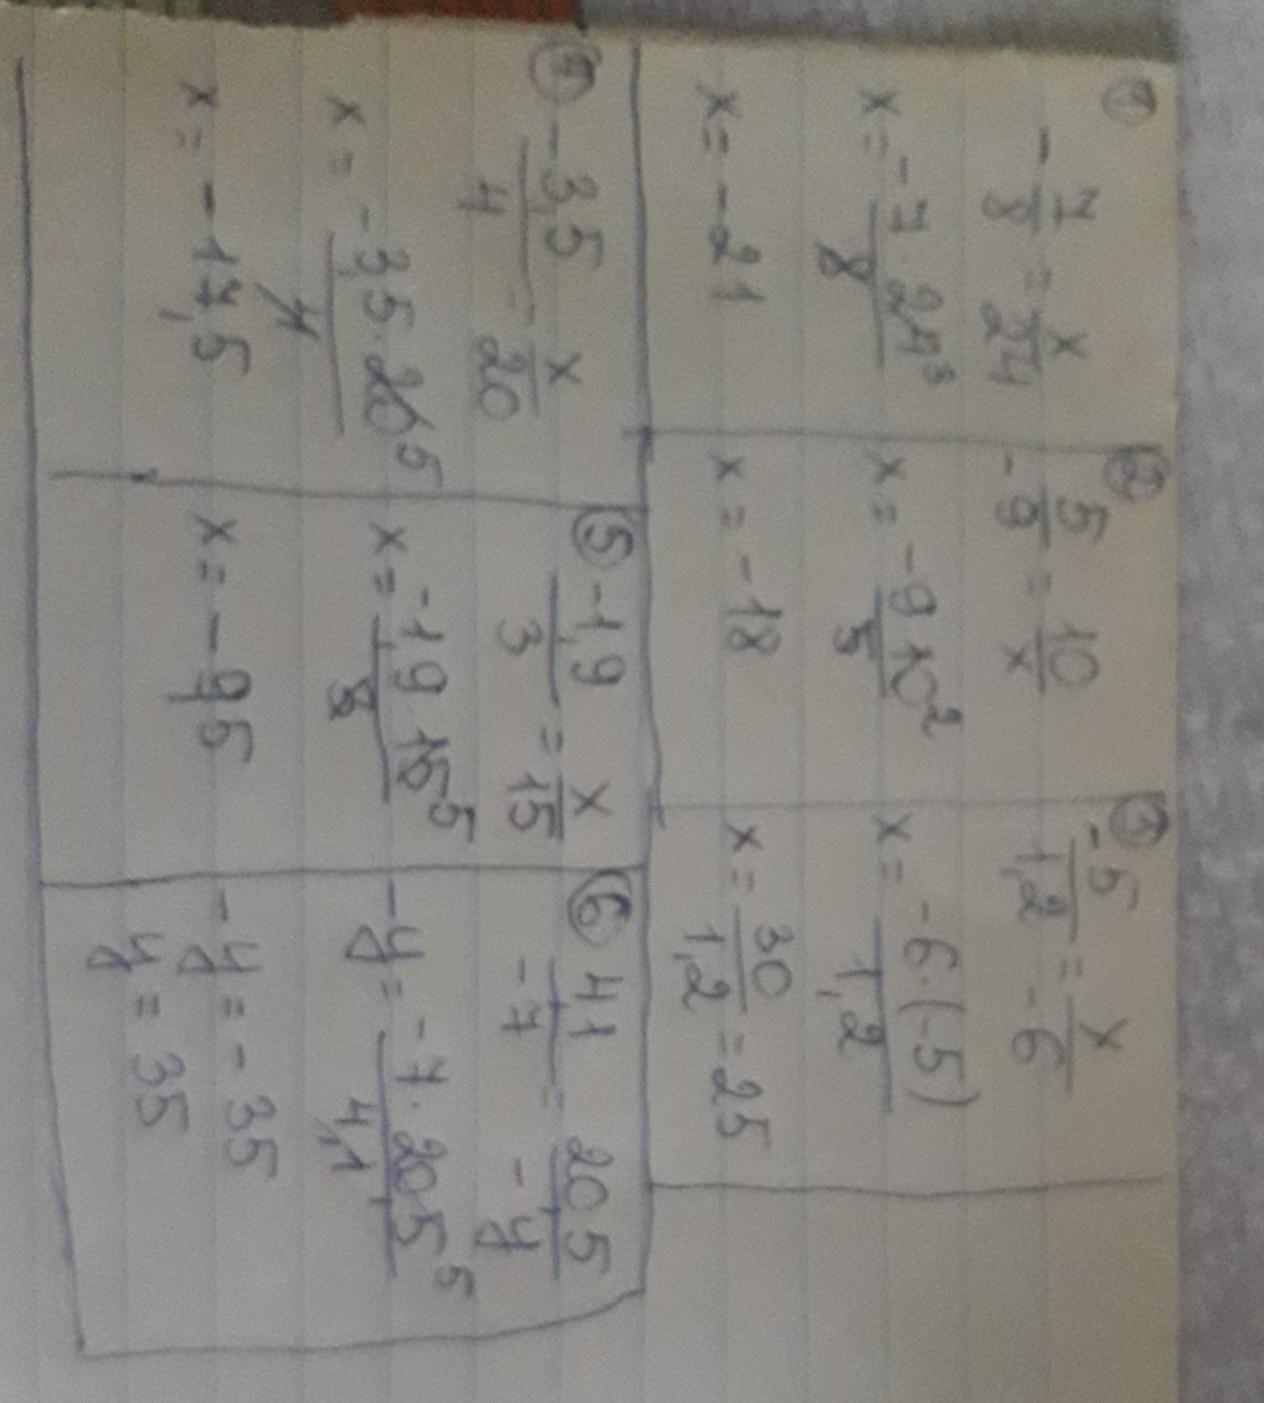 ① -7/8 = x/24
x = -7·24³/8
x = -21
② -5/9 = 10/x
x = -9·10²/5
x = -18
③ -5/1,2 = x/-6
x = -6·(-5)/1,2
x = 30/1,2 = 25
④ -3,5/4 = x/20
x = -3,5·20⁵/4
x = -17,5
⑤ -1,9/3 = x/15
x = -1,9·15⁵/3
x = -9,5
⑥ 4,1/-7 = 20,5/-y
-y = -7·20,5⁵/4,1
-y = -35
y = 35